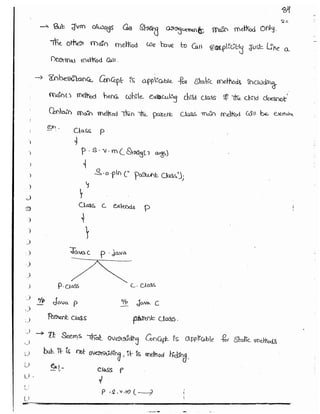 → But Jvm always Call String[] argument main method only.
The other main method we have to Call explicitly Just Like a
normal method Call.
→ Inheritance Concept is applicable for static methods including
main() method hence while executing child class if the child doesnot
Contain main method then the parent class main method will be
Ex:-
class P
{
P.S.V.m(String[] args)
{
S.o.pln("Parent class");
}
}
class C extends P
{
}
Javac P.java
P.class C.class
Java P Java C
Parent class parent class.
→ It Seems that overriding Concept is applicable for static methods
but it is not overriding, it is method hiding.
Ex:-
class P
{
P.S.V.m (